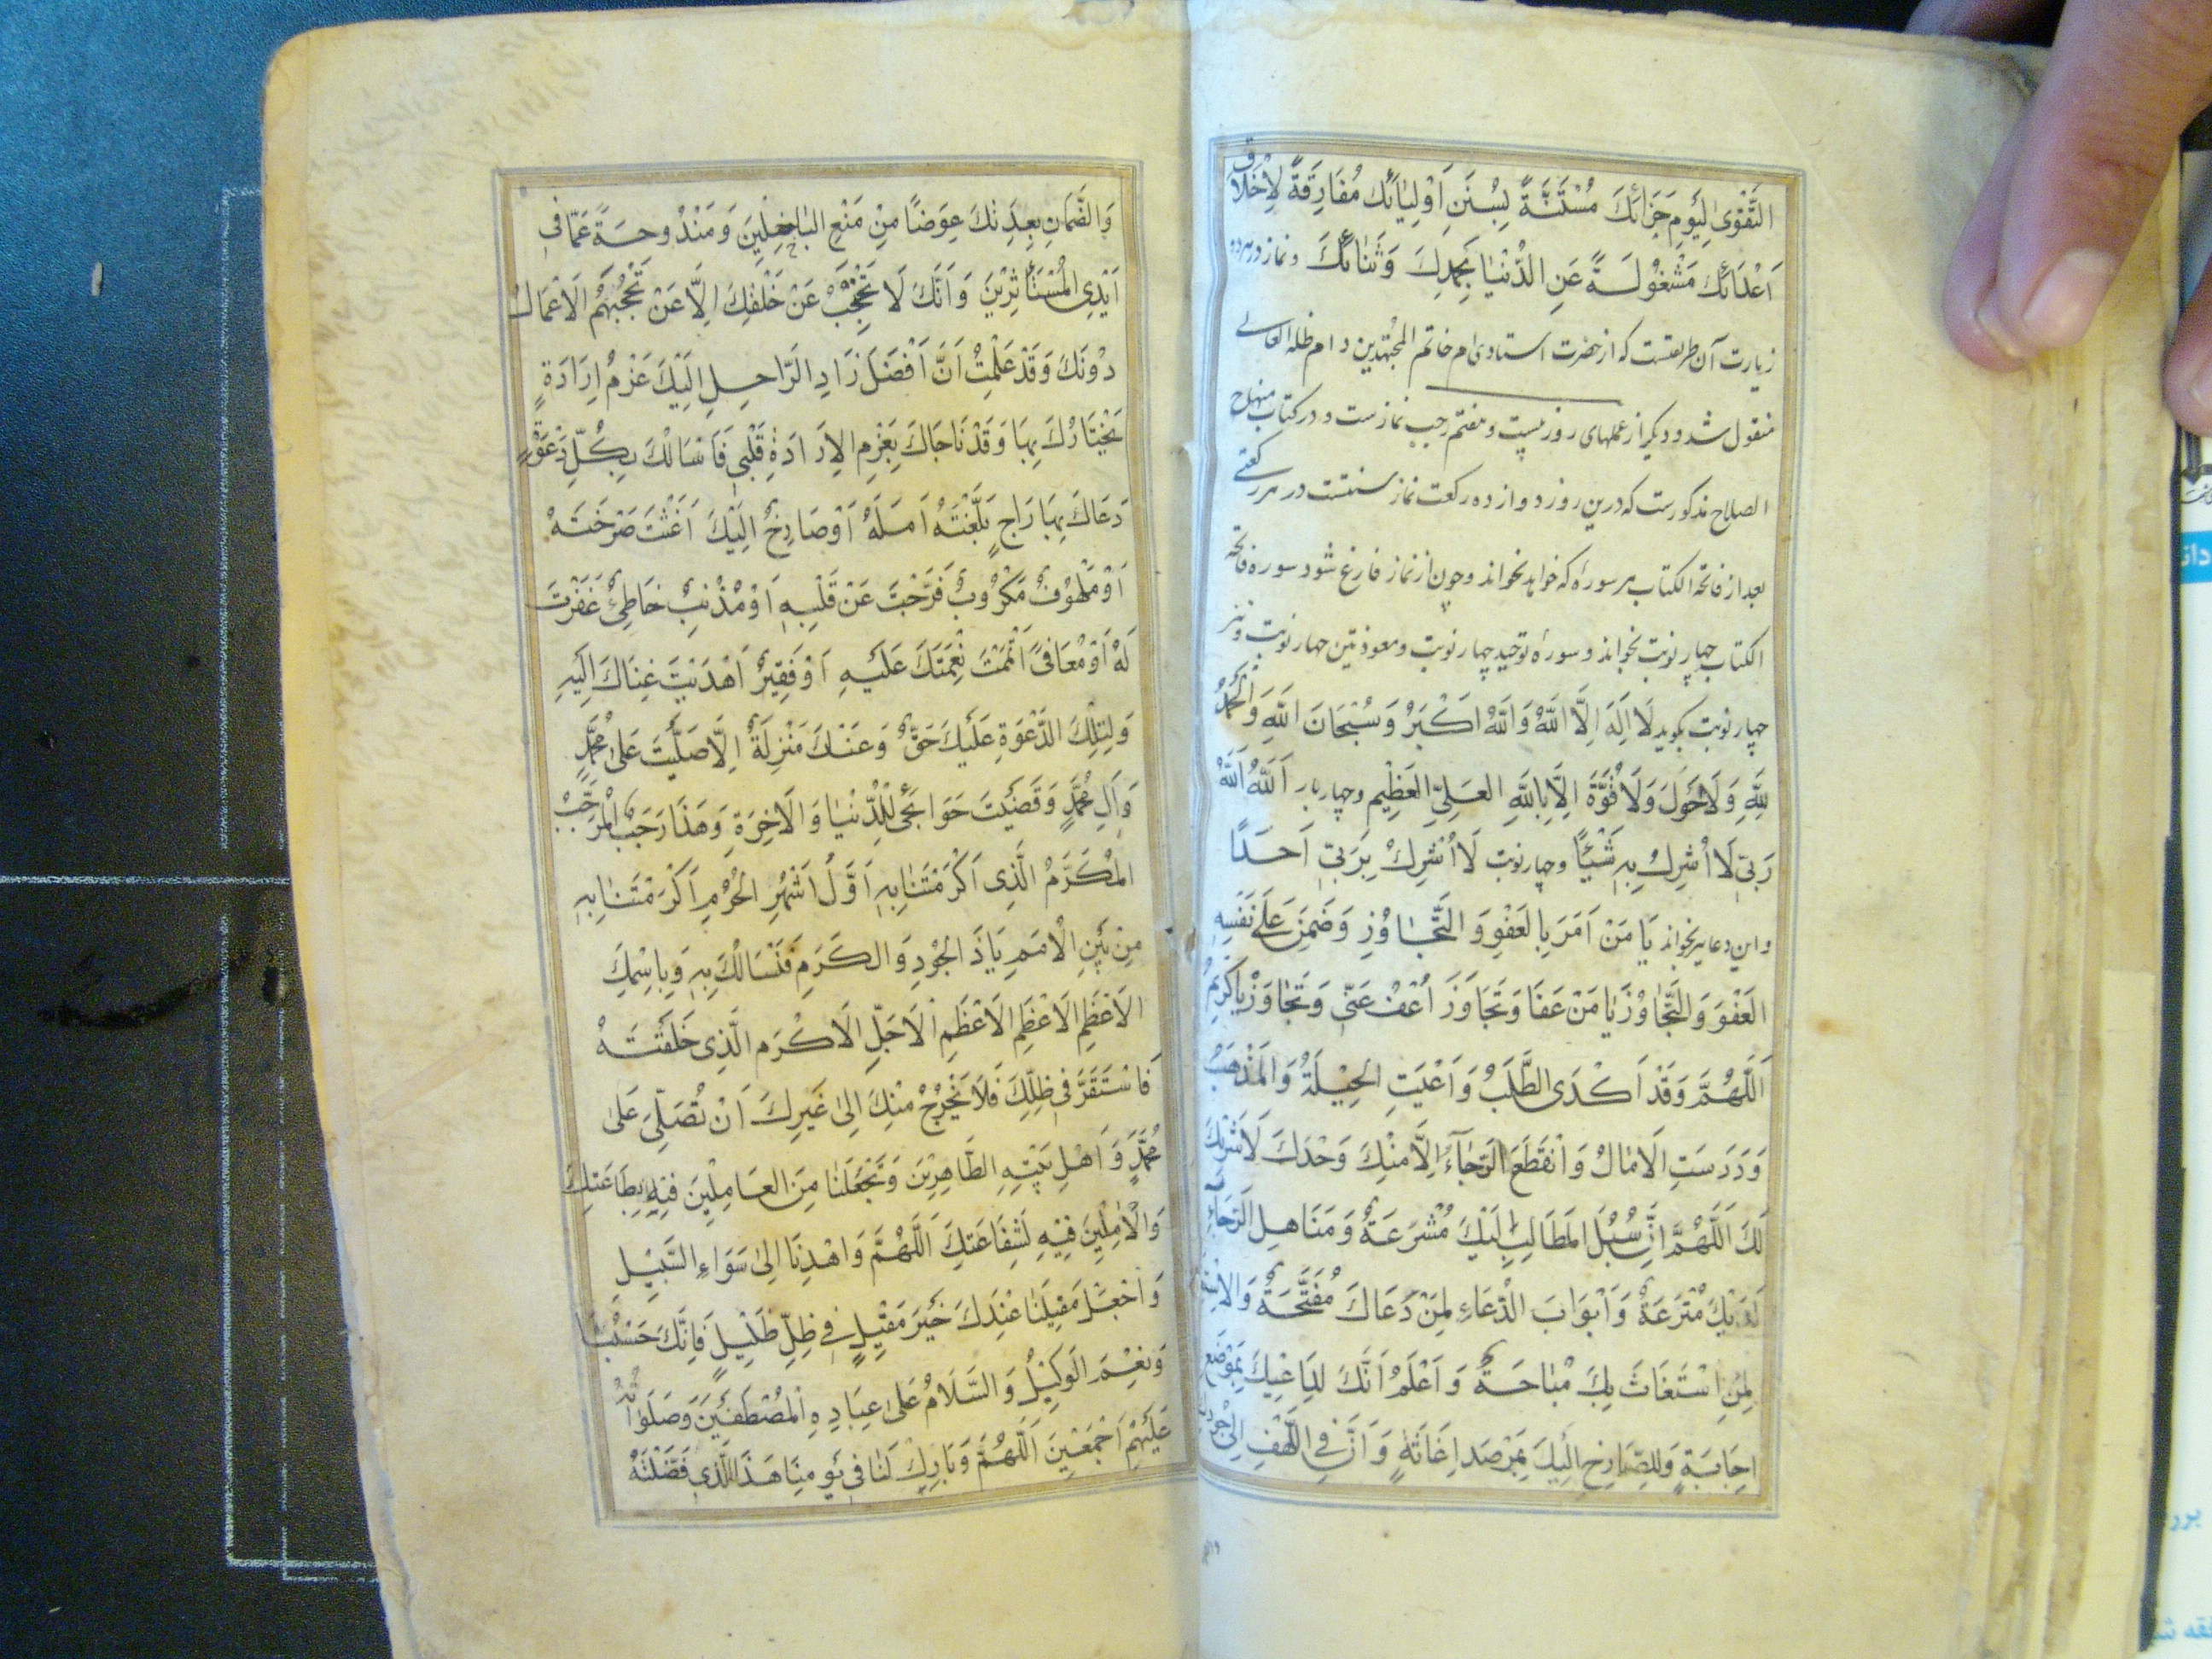 التَّقْوىٰ لِيَومِ جَزَائِكَ مُسْتَنَّةً بِسُنَنِ اَوْلِيٰائِكَ مُفَارِقَةً لِاَخْلَاق
اَعْدَائِكَ مَشْغُوْلَةً عَنِ الدُّنْيٰا بِحَمْدِكَ وَثَنٰائِكَ ونماز در هر دو
زیارت آن طریقتست که از حضرت استادی ام خاتم المجتهدین دام ظله العالی
منقول شد و دیگر از عملهای روز بیست و هفتم رجب نمازست و در کتاب منهاج
الصلاح مذکورست که درین روز دوازده رکعت نماز سنتست در هر رکعتی
بعد از فاتحة الکتاب هر سورهٔ که خواهد بخواند و چون از نماز فارغ شود سوره فاتحة
الکتاب چهار نوبت بخواند و سورهٔ توحید چهار نوبت و معوذتین چهار نوبت و نیز
چهار نوبت بگوید لَا اِلٰهَ اِلَّا اللّٰهُ وَاللّٰهُ اَكْبَرُ وَسُبْحَانَ اللّٰهِ وَالْحَمْدُ
لِلّٰهِ وَلَا حَوْلَ وَلَا قُوَّةَ اِلَّا بِاللّٰهِ الْعَلِيِّ الْعَظِيْمِ وچهار بار اَللّٰهُ اَللّٰهُ
رَبِّي لَا اُشْرِكُ بِهِ شَيْئًا وچهار نوبت لَا اُشْرِكُ بِرَبِّي اَحَدًا
و این دعا نیز بخواند يَا مَنْ اَمَرَ بِالعَفْوِ وَ التَّجٰاوُزِ وَضَمِنَ عَلىٰ نَفْسِهِ
العَفْوَ وَالتَّجٰاوُزَ يٰا مَنْ عَفَا وَتَجَاوَزَ اُعْفُ عَنِّي وَتَجٰاوَزْ يٰا كَرِيْمُ
اَللّٰهُمَّ وَقَدْ اَكْدَى الطَّلَبُ وَاَعْيَتِ الحِيْلَةُ وَالمَذْهَبُ
وَدَرَسَتِ الاٰمٰالُ وَانْقَطَعَ الرَّجٰاءُ اِلَّا مِنْكَ وَحْدَكَ لَا شَرِيْكَ
لَكَ اَللّٰهُمَّ اِنَّ سُبُلَ المَطَالِبِ اِلَيْكَ مُشْرَعَةٌ وَمَنَاهِلَ الرَّجَاءِ
لَدَيْكَ مُتْرَعَةٌ وَاَبْوَابَ الدُّعَاءِ لِمَنْ دَعَاكَ مُفَتَّحَةٌ وَالاِسْتِ
لِمَنِ اسْتَغَاثَ بِكَ مُبٰاحَةٌ وَاَعْلَمُ اَنَّكَ لِدَاعِيْكَ بِمَوْضِعِ
اِجَابَةٍ وَلِلصَّارِخِ اِلَيْكَ بِمَرْصَدِ اِغَاثَةٍ وَاَنَّ فِي اللَّهْفِ اِلىٰ جُوْدِكَ
وَالضَّمَانِ بِعِدَتِكَ عِوَضًا مِنْ مَنْعِ البَاخِلِيْنَ وَمَنْدُوحَةً عَمَّا فِي
اَيْدِي المُسْتَأْثِرِيْنَ وَاَنَّكَ لَا تَحْتَجِبُ عَنْ خَلْقِكَ اِلَّا عَنْ تَحْجُبُهُمُ الاَعْمَالُ
دُوْنَكَ وَقَدْ عَلِمْتُ اَنَّ اَفْضَلَ زَادِ الرَّاحِلِ اِلَيْكَ عَزْمُ اِرَادَةٍ
يَخْتَارُكَ بِهَا وَقَدْ نَاجَاكَ بِعَزْمِ الاِرَادَةِ قَلْبِي فَاَسْاَلُكَ بِكُلِّ دَعْوَةٍ
دَعَاكَ بِهَا رَاجٍ بَلَّغْتَهُ اَمَلَهُ اَوْصَارِخٌ اِلَيْكَ اَغَثْتَ صَرْخَتَهُ
اَوْ مَلْهُوْفٌ مَكْرُوْبٌ فَرَّجْتَ عَنْ قَلْبِهِ اَوْ مُذْنِبٌ خَاطِئٌ غَفَرْتَ
لَهُ اَوْ مُعَافىً اَتْمَمْتَ نِعْمَتَكَ عَلَيْهِ اَوْ فَقِيْرٌ اَهْدَيْتَ غِنَاكَ اِلَيْهِ
وَلِتِلْكَ الدَّعْوَةِ عَلَيْكَ حَقٌّ وَعِنْدَكَ مَنْزِلَةٌ اِلَّا صَلَّيْتَ عَلىٰ مُحَمَّدٍ
وَاٰلِ مُحَمَّدٍ وَقَضَيْتَ حَوَائِجِي لِلدُّنْيٰا وَالاٰخِرَةِ وَهَذَا رَجَبُ الْمُرَجَّبُ
المُكَرَّمُ الَّذِي اَكْرَمْتَنٰا بِهِ اَوَّلُ اَشْهُرِ الحُرُمِ اَكْرَمْتَنٰا بِهِ
مِنْ بَيْنِ الاُمَمِ يَا ذَا الجُوْدِ وَالكَرَمِ فَنَسْاَلُكَ بِهِ وَبِاسْمِكَ
الاَعْظَمِ الاَعْظَمِ الاَعْظَمِ الاَجَلِّ الاَكْرَمِ الَّذِي خَلَقْتَهُ
فَاسْتَقَرَّ فِي ظِلِّكَ فَلَا يَخْرُجُ مِنْكَ اِلىٰ غَيْرِكَ اَنْ تُصَلِّيَ عَلىٰ
مُحَمَّدٍ وَاَهْلِ بَيْتِهِ الطَّاهِرِيْنَ وَتَجْعَلَنٰا مِنَ العَامِلِيْنَ فِيْهِ بِطَاعَتِكَ
وَالاٰمِلِيْنَ فِيْهِ لِشَفَاعَتِكَ اَللّٰهُمَّ وَاهْدِنَا اِلىٰ سَوَاءِ السَّبِيْلِ
وَاجْعَلْ مَقِيْلَنٰا عِنْدَكَ خَيْرَ مَقِيْلٍ فِي ظِلٍّ ظَلِيْلٍ فَاِنَّكَ حَسْبُنَا
وَنِعْمَ الوَكِيْلُ وَالسَّلَامُ عَلىٰ عِبَادِهِ المُصْطَفَيْنَ وَصَلَوَاتُهُ
عَلَيْهِمْ اَجْمَعِيْنَ اَللّٰهُمَّ وَبَارِكْ لَنٰا فِي يَوْمِنَا هَذَا الَّذِي فَضَّلْتَهُ